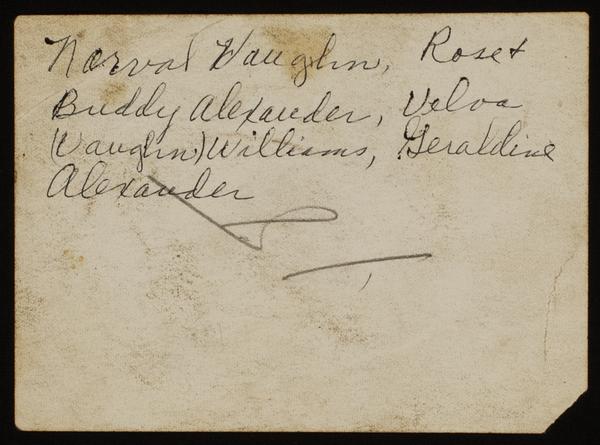 Norval Vaughn, Rose &
Buddy Alexander, Velva
(Vaughn) Williams, Geraldine
Alexander